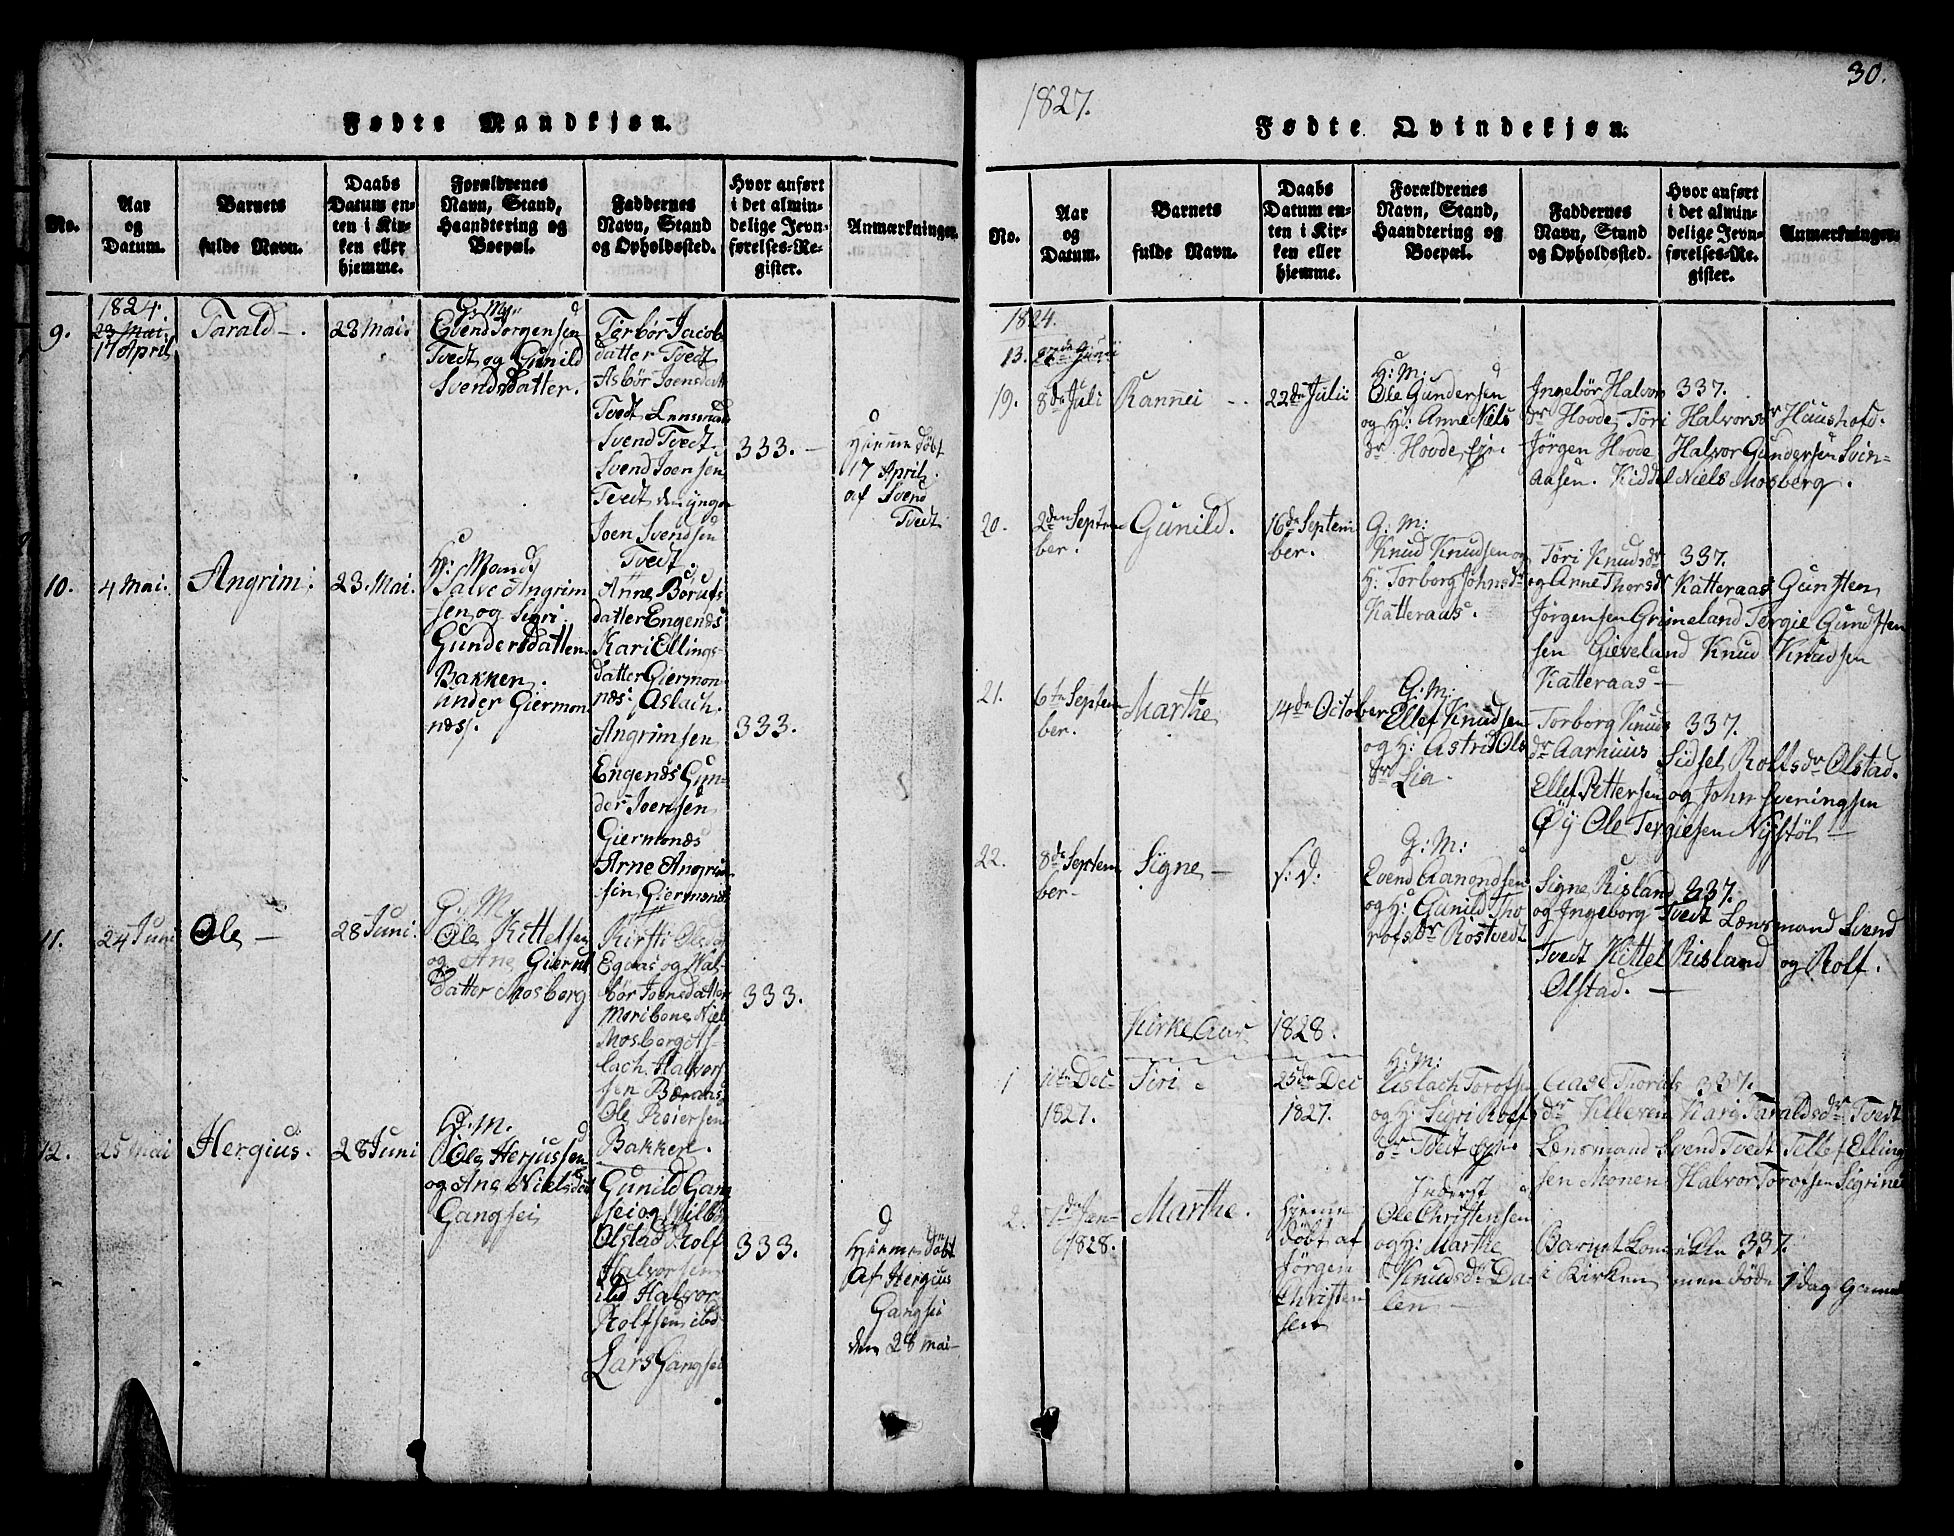 Fødte Mandkjøn.
No.
Aar
og
Datum.
Barnets
fulde Navn.
Daabs
Datum en-
ten i Kir-
ken eller
hjemme.
Forældrenes
Navn, Stand,
Haandtering og
Boepæl.
Faddernes
Navn, Stand
og Opholdssted.
Hvor anført
i det almin-
delige Jevn-
førelses-Re-
gister.
Anmærkninger.
9.
1824.
23 Mai.
17 April
Tarald
23 Mai.
G. M.
Evend Jorgensen
Tvedt og Gunild
Svendsdatter.
Torbør Jacob
datter Tvedt
Asbør Joensdatt
Tvedt Lensmand
Svend Tvedt
Svend Joensen
Tvedt den yngre
Joen Svendsen
Tvedt
333.
Hjemmedøbt
17 April
af Svend
Tvedt
10.
4 Mai.
Angrim.
23. Mai.
H: Mand
Salve Angrim
sen og Sigri
Gundersdatter
Bakken.
under Giermon
næs.
Anne Borufs
datter Engenes
Kari Ellings-
datter Giermon
næs. Aslach
Angrimsen
Engenæs Gun-
der Joensen
Giermonæs
Arne Angrim
sen Giermonæs
333.
11.
24 Juni
Ole
28 Juni.
G. M.
Ole Kittelsen
og Ane Giermd
datter Mosberg
Kirsti Olsd
Egaas og Wal-
bør Joensdatter
Moribone Niel
Mosberg As-
lach Halvor
sen
Ole Reiersen
Bakken
333.
12.
25 Mai
Hergius.
28 Juni
G. M.
Ole Herjussen
og Ane Nielsdat
Gangsei
Gunild Gang
sei og Wilb
Olstad Rolf
Halvorsen
ibd Halvor
Rolfsen ibd
Lars Gangsei
333.
Hjemmedøbt
af Hergius
Gangsei
den 28 Mai
30.
1827.
Fødte Qvindekjøn.
No.
Aar
og
Datum.
Barnets
fulde Navn.
Daabs
Datum en-
ten i Kir-
ken eller
hjemme.
Forældrenes
Navn, Stand,
Haandtering og
Boepæl.
Faddernes
Navn, Stand
og Opholdssted.
Hvor anført
i det almin-
delige Jevn-
førelses-Re-
gister.
Anmærkninger.
1824.
13. 27de Junii
19.
8de Juli
Rannei
22de Julii
H: M:
Ole Gundersen
og H: Anne Niels
dr Hovde
Ingebør Halvors 337.
dr Hovde, Töri Halvorsdr Haushofd.
Jörgen Hovde, Halvor Gundersen Svin-
aasen. Kiddel Niels Mosberg.
20.
2den Septem
ber.
Gunild.
16de Septem
ber.
G: M:
Knud Knudsen og
H: Torborg Johnsdr
Katteraas.
Töri Knudsdr 337.
og Anne Thorsdr Katteraas Gunsten
Jörgensen Grimeland Tergie Gundsten
sen Gieveland Knud Knudsen
Katteraas
21.
6te Septem
ber.
Marthe
14de October
G: M:
Ellef Knudsen
og H: Astrid Ols
dr Lia.
Torborg Knuds 337.
dr Aarhuus Sidsel Rolfsdr Olstad.
Ellef Pettersen og John Sveningsen
Öÿ Ole Tergiesen Nystöl
22.
8de Septem
ber.
Signe
s: d:
G: M:
Evend Aanondsen
og H: Gunild Tho
rofsdr Rostvedt
Signe Risland 337.
og Ingeborg Tvedt Lænsmand Svend
Tvedt Kittel Risland og Rolf
Olstad.
KirkeAar 1828.
1
11te Dec
1827.
Siri
25de Dec
1827.
H: M:
Aslach Torofsen
og H: Sigri Rolfs
dr Tvedt
Aase Thorafs 337.
dr Killeven Kari Taraldsdr Tvedt
Lensmand Svend Tvedt Tellef Elling
sen Monen Halvor Torofsen Sigrine
2.
7de Jan-
1828.
Marthe.
Hjemme
döbt af
Jörgen
Christen
sen
Inderst
Ole Christensen
og H: Marthe
Knudsdr Da-
len
Barnet kom 337.
i Kirken, men döde 1 dag gamel